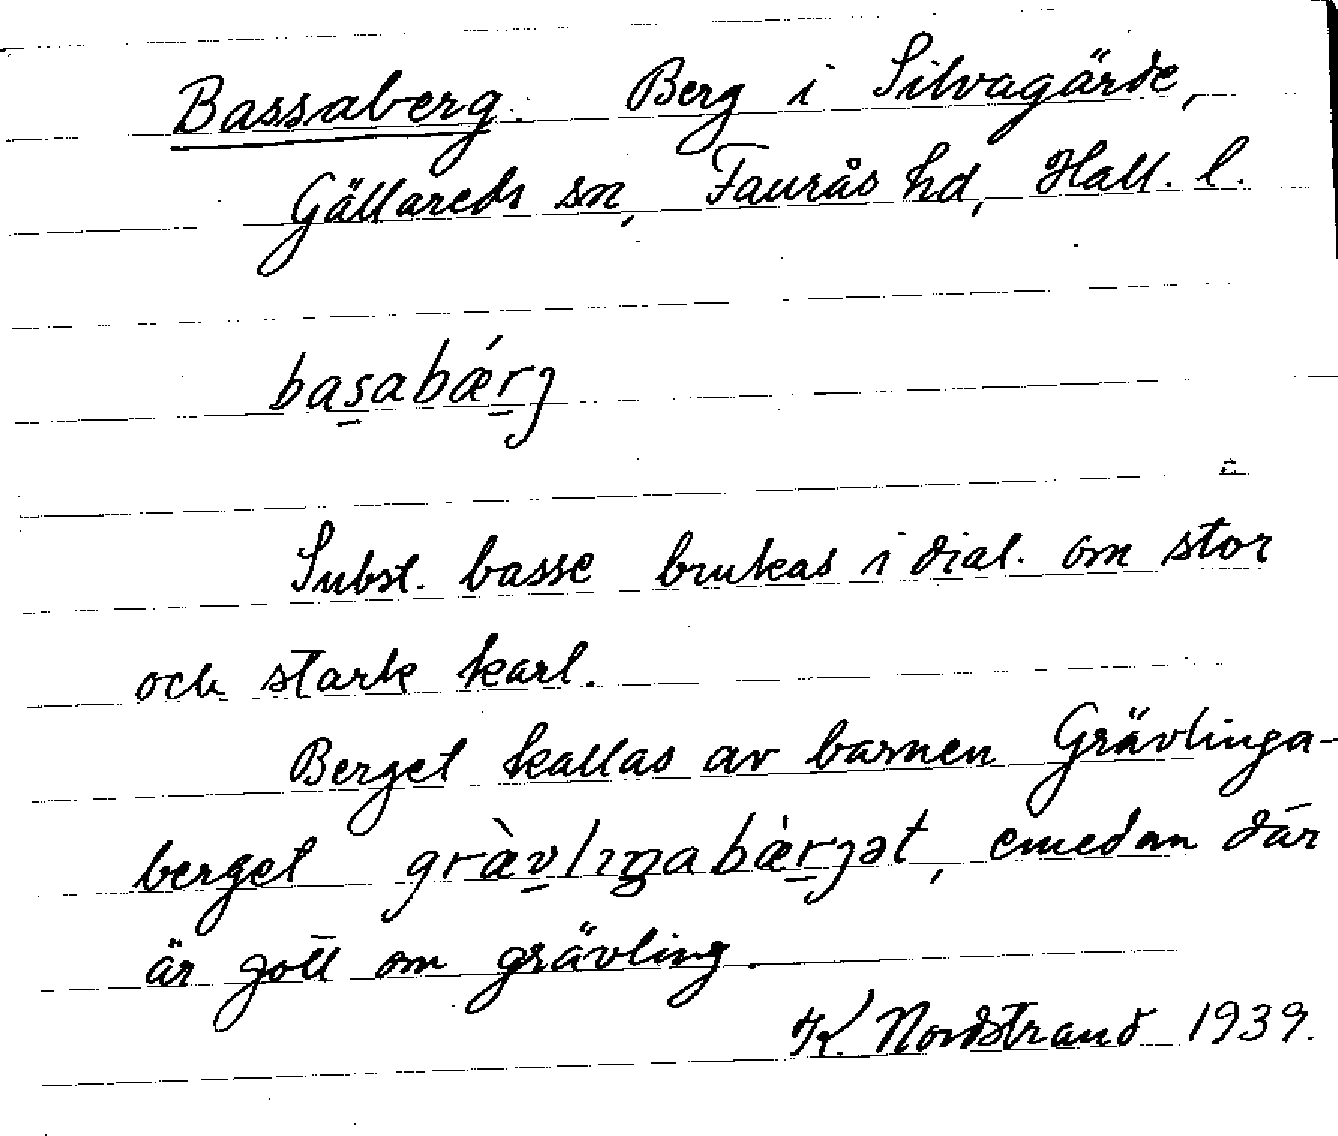 Bassaberg. Berg i Silvagärde,
Gällareds sn, Faurås hd, Hall. l.
basabǽrj
Subst. basse brukas i dial. om stor
och stark karl.
Berget kallas av barnen Grävlinga-
berget græ̀vlıŋabæ̀rjət, emedan där
är gott om grävling.
K. Nordstrand 1939.